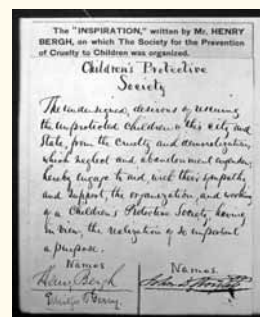 The "INSPIRATION," written by Mr. HENRY
BERGH, on which The Society for the Prevention
of Cruelty to Children was organized.
Children's Protective
Society
The undersigned, desirous of rescuing
the unprotected children of this city and
State, from the cruelty and demoralization,
which neglect and abandonment engender,
hereby engage to aid, with their sympathy,
and support, the organization, and working
of a Children's Protective Society, having
in view, the realization of so important
a purpose.
Names Names
Henry Bergh
Elbridge T Gerry